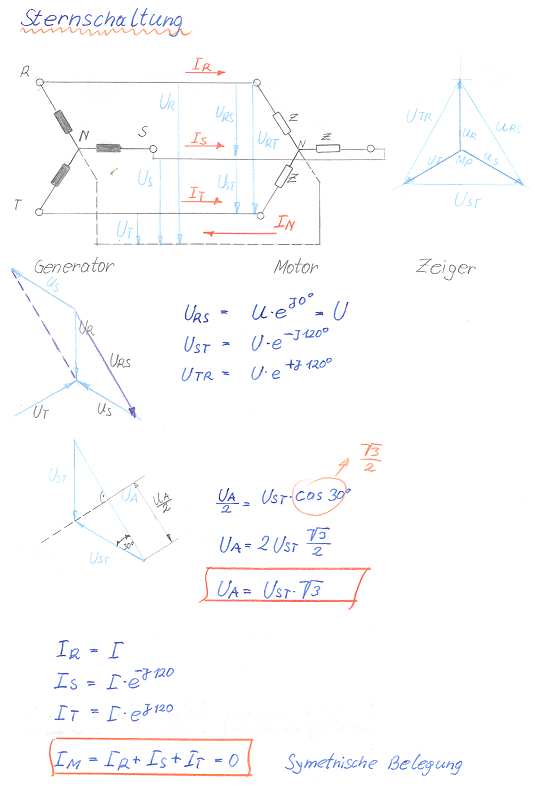 Sternschaltung
R
I_R
U_R
U_RS
Z
N
S
I_S
U_RT
N
Z
U_S
U_ST
Z
T
I_T
U_T
I_N
U_TR
U_R
U_RS
U_T
Mp
U_S
U_ST
Generator
Motor
Zeiger
U_S
U_R
U_RS
U_T
U_S
U_RS = U·e^J0° = U
U_ST = U·e^-J120°
U_TR = U·e^+J120°
U_ST
U_A
U_A/2
30°
U_ST
√3/2
U_A/2 = U_ST·cos 30°
U_A = 2 U_ST √3/2
U_A = U_ST·√3
I_R = I
I_S = I·e^-J120
I_T = I·e^J120
I_M = I_R + I_S + I_T = 0
Symetrische Belegung